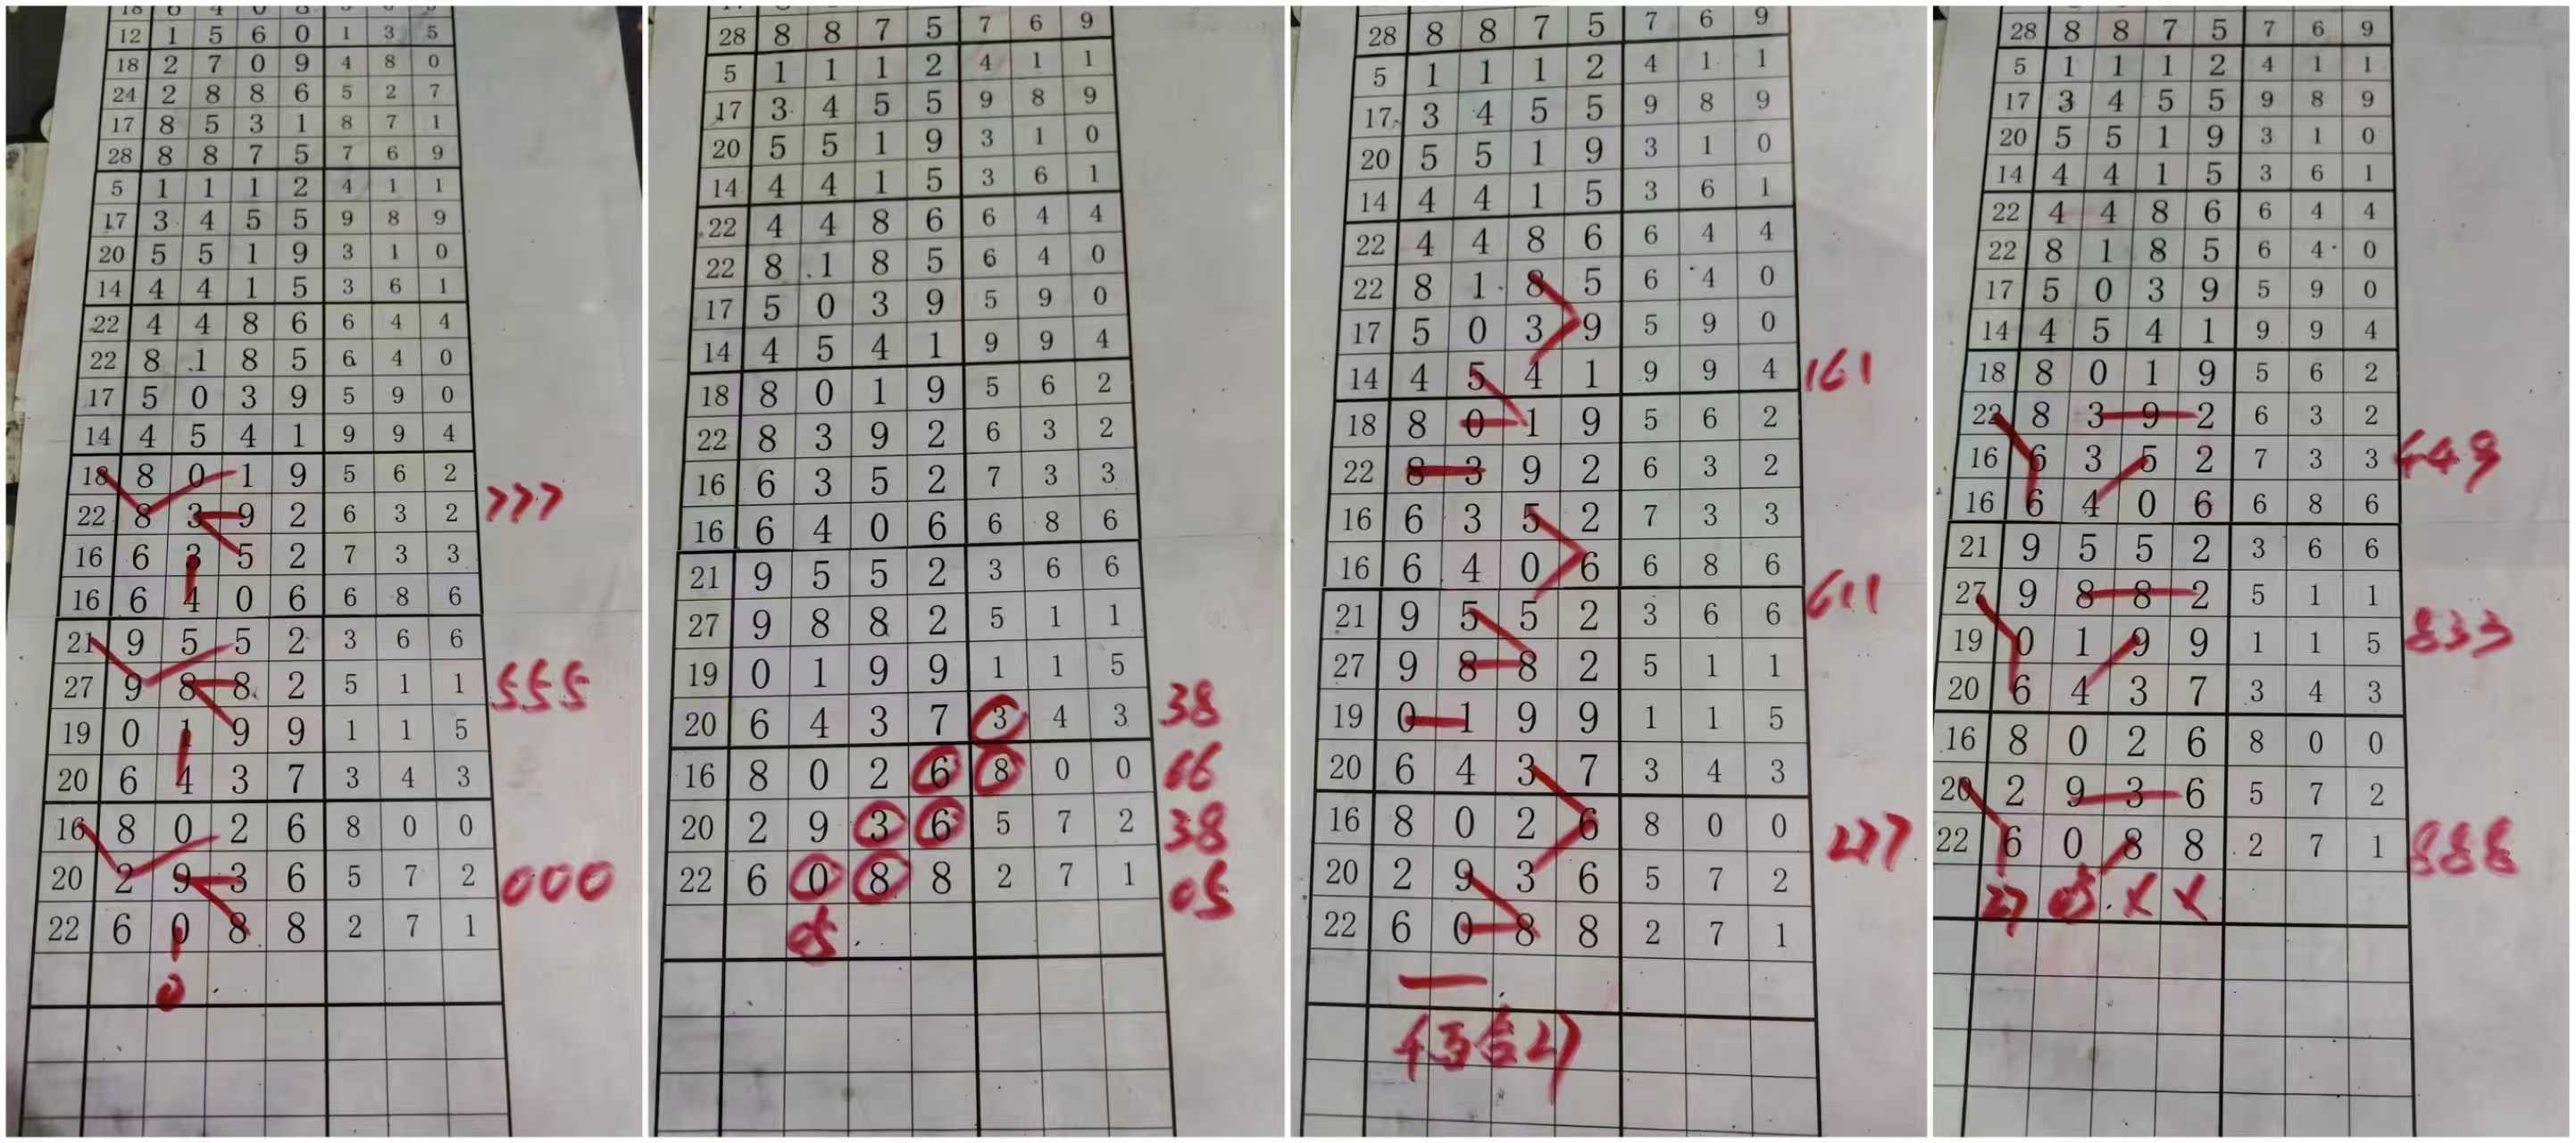 12 1 5 6 0 1 3 5
18 2 7 0 9 4 8 0
24 2 8 8 6 5 2 7
17 8 5 3 1 8 7 1
28 8 8 7 5 7 6 9
5 1 1 1 2 4 1 1
17 3 4 5 5 9 8 9
20 5 5 1 9 3 1 0
14 4 4 1 5 3 6 1
22 4 4 8 6 6 4 4
22 8 1 8 5 6 4 0
17 5 0 3 9 5 9 0
14 4 5 4 1 9 9 4
18 8 0 1 9 5 6 2
22 8 3 9 2 6 3 2 777
16 6 3 5 2 7 3 3
16 6 4 0 6 6 8 6
21 9 5 5 2 3 6 6
27 9 8 8 2 5 1 1 555
19 0 1 9 9 1 1 5
20 6 4 3 7 3 4 3
16 8 0 2 6 8 0 0
20 2 9 3 6 5 7 2 000
22 6 0 8 8 2 7 1
0
28 8 8 7 5 7 6 9
5 1 1 1 2 4 1 1
17 3 4 5 5 9 8 9
20 5 5 1 9 3 1 0
14 4 4 1 5 3 6 1
22 4 4 8 6 6 4 4
22 8 1 8 5 6 4 0
17 5 0 3 9 5 9 0
14 4 5 4 1 9 9 4
18 8 0 1 9 5 6 2
22 8 3 9 2 6 3 2
16 6 3 5 2 7 3 3
16 6 4 0 6 6 8 6
21 9 5 5 2 3 6 6
27 9 8 8 2 5 1 1
19 0 1 9 9 1 1 5
20 6 4 3 7 3 4 3 38
16 8 0 2 6 8 0 0 66
20 2 9 3 6 5 7 2 38
22 6 0 8 8 2 7 1 05
05
28 8 8 7 5 7 6 9
5 1 1 1 2 4 1 1
17 3 4 5 5 9 8 9
20 5 5 1 9 3 1 0
14 4 4 1 5 3 6 1
22 4 4 8 6 6 4 4
22 8 1 8 5 6 4 0
17 5 0 3 9 5 9 0
14 4 5 4 1 9 9 4 161
18 8 0 1 9 5 6 2
22 8 3 9 2 6 3 2
16 6 3 5 2 7 3 3
16 6 4 0 6 6 8 6
21 9 5 5 2 3 6 6 611
27 9 8 8 2 5 1 1
19 0 1 9 9 1 1 5
20 6 4 3 7 3 4 3
16 8 0 2 6 8 0 0 277
20 2 9 3 6 5 7 2
22 6 0 8 8 2 7 1
28 8 8 7 5 7 6 9
5 1 1 1 2 4 1 1
17 3 4 5 5 9 8 9
20 5 5 1 9 3 1 0
14 4 4 1 5 3 6 1
22 4 4 8 6 6 4 4
22 8 1 8 5 6 4 0
17 5 0 3 9 5 9 0
14 4 5 4 1 9 9 4
18 8 0 1 9 5 6 2
22 8 3 9 2 6 3 2
16 6 3 5 2 7 3 3 449
16 6 4 0 6 6 8 6
21 9 5 5 2 3 6 6
27 9 8 8 2 5 1 1
19 0 1 9 9 1 1 5 833
20 6 4 3 7 3 4 3
16 8 0 2 6 8 0 0
20 2 9 3 6 5 7 2
22 6 0 8 8 2 7 1 888
27 05 X X